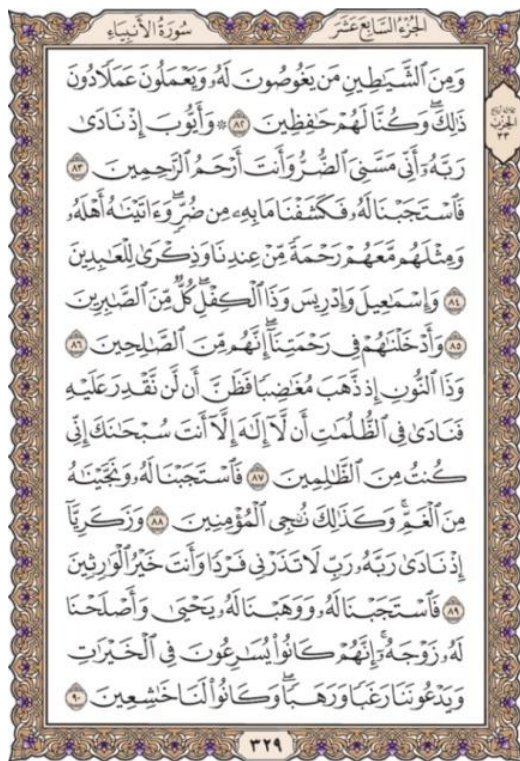 الجزء السابع عشر
سورة الأنبياء
وَمِنَ ٱلشَّيَٰطِينِ مَن يَغُوصُونَ لَهُۥ وَيَعۡمَلُونَ عَمَلٗا دُونَ
ذَٰلِكَۖ وَكُنَّا لَهُمۡ حَٰفِظِينَ ٨٢ ۞ وَأَيُّوبَ إِذۡ نَادَىٰ
رَبَّهُۥٓ أَنِّي مَسَّنِيَ ٱلضُّرُّ وَأَنتَ أَرۡحَمُ ٱلرَّٰحِمِينَ ٨٣
فَٱسۡتَجَبۡنَا لَهُۥ فَكَشَفۡنَا مَا بِهِۦ مِن ضُرّٖۖ وَءَاتَيۡنَٰهُ أَهۡلَهُۥ
وَمِثۡلَهُم مَّعَهُمۡ رَحۡمَةٗ مِّنۡ عِندِنَا وَذِكۡرَىٰ لِلۡعَٰبِدِينَ
٨٤ وَإِسۡمَٰعِيلَ وَإِدۡرِيسَ وَذَا ٱلۡكِفۡلِۖ كُلّٞ مِّنَ ٱلصَّٰبِرِينَ
٨٥ وَأَدۡخَلۡنَٰهُمۡ فِي رَحۡمَتِنَآۖ إِنَّهُم مِّنَ ٱلصَّٰلِحِينَ ٨٦
وَذَا ٱلنُّونِ إِذ ذَّهَبَ مُغَٰضِبٗا فَظَنَّ أَن لَّن نَّقۡدِرَ عَلَيۡهِ
فَنَادَىٰ فِي ٱلظُّلُمَٰتِ أَن لَّآ إِلَٰهَ إِلَّآ أَنتَ سُبۡحَٰنَكَ إِنِّي
كُنتُ مِنَ ٱلظَّٰلِمِينَ ٨٧ فَٱسۡتَجَبۡنَا لَهُۥ وَنَجَّيۡنَٰهُ
مِنَ ٱلۡغَمِّۚ وَكَذَٰلِكَ نُـۨجِي ٱلۡمُؤۡمِنِينَ ٨٨ وَزَكَرِيَّآ
إِذۡ نَادَىٰ رَبَّهُۥ رَبِّ لَا تَذَرۡنِي فَرۡدٗا وَأَنتَ خَيۡرُ ٱلۡوَٰرِثِينَ
٨٩ فَٱسۡتَجَبۡنَا لَهُۥ وَوَهَبۡنَا لَهُۥ يَحۡيَىٰ وَأَصۡلَحۡنَا
لَهُۥ زَوۡجَهُۥٓۚ إِنَّهُمۡ كَانُواْ يُسَٰرِعُونَ فِي ٱلۡخَيۡرَٰتِ
وَيَدۡعُونَنَا رَغَبٗا وَرَهَبٗاۖ وَكَانُواْ لَنَا خَٰشِعِينَ ٩٠
الحزب
٣٣
٣٢٩